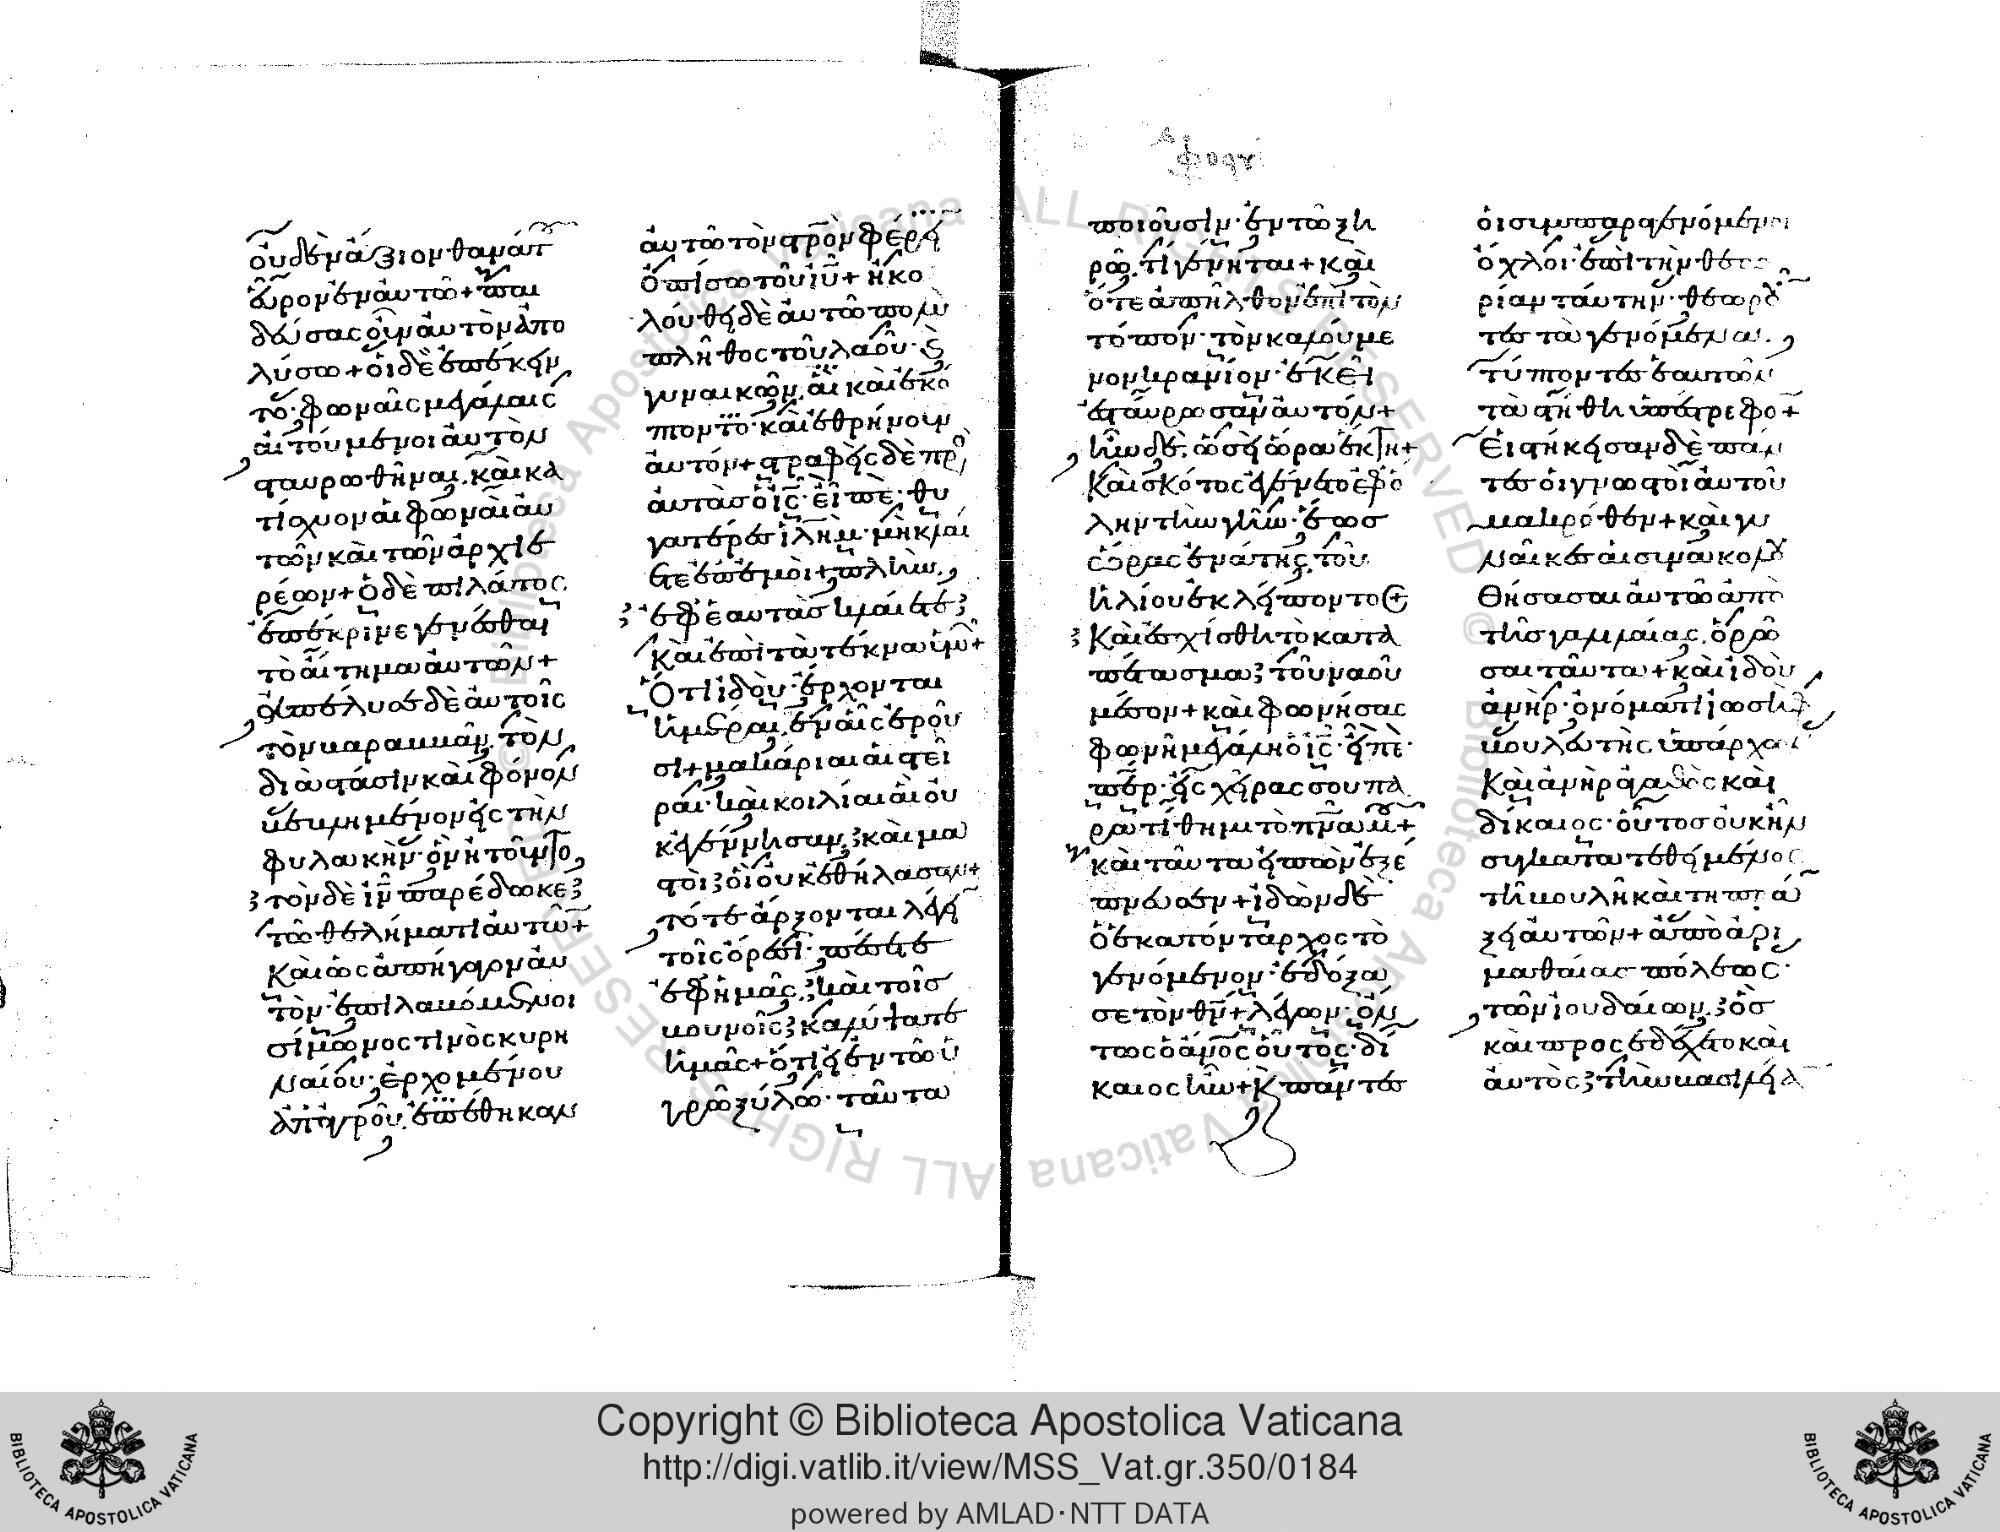 οὐδὲν ἄξιον θανάτ
εὗρον ἐν αὐτῶ + παι
δεύσας οὖν αὐτὸν ἀπο
λύσω + οἱ δὲ ἐπέκειν
το· φωναῖς μεγάλαις
αἰτούμενοι αὐτὸν
σταυρωθῆναι, καὶ κα
τίσχυον αἱ φωναὶ αὐ
τῶν καὶ τῶν ἀρχιε
ρέων + ὁ δὲ πιλάτος
ἐπέκρινε γενέσθαι
τὸ αἴτημα αὐτῶν +
ἀπέλυσε δὲ αὐτοῖς
τὸν βαραββᾶν, τὸν
διὰ στάσιν καὶ φόνον
βεβλημένον εἰς τὴν
φυλακήν· ὃν ἠτοῦντο,
τὸν δὲ ἰν παρέδωκε
τῶ θελήματι αὐτῶν +
Καὶ ὡς ἀπήγαγον αὐ
τὸν· ἐπιλαβόμενοι
σίμωνος τινὸς κυρη
ναίου· ἐρχομένου
ἀπ' ἀγροῦ, ἐπέθηκαν
αὐτῶ τὸν στρον φέρειν
ὄπισθεν τοῦ ιυ + ἠκο
λούθει δὲ αὐτῶ πολὺ
πλῆθος τοῦ λαοῦ· καὶ
γυναικῶν, αἳ καὶ ἐκό
πτοντο· καὶ ἐθρήνουν
αὐτόν + στραφεὶς δὲ πρὸς
αὐτὰς ὁ ις· εἶπε· θυ
γατέρες ἰλημ· μὴ κλαί
ετε ἐπ' ἐμοὶ + πλὴν,
ἐφ' ἑαυτὰς κλαίετε
Καὶ ἐπὶ τὰ τέκνα ὑμῶν +
Ὅτι ἰδοὺ· ἔρχονται
ἡμέραι, ἐν αἷς ἐροῦ
σι + μακάριαι αἱ στεῖ
ραι· καὶ κοιλίαι αἳ οὐ
κ ἐγέννησαν, καὶ μα
στοὶ οἳ οὐκ ἐθήλασαν +
τότε ἄρξονται λέγειν
τοῖς ὄρεσι· πέσετε
ἐφ' ἡμᾶς, καὶ τοῖς
βουνοῖς καλύψατε
ἡμᾶς + ὅτι εἰ ἐν τῶ ὑ
γρῶ ξύλω· ταῦτα
ποιοῦσιν· ἐν τῶ ξη
ρῶ, τί γένηται + καὶ
ὅτε ἀπῆλθον ἐπὶ τὸν
τόπον· τὸν καλούμε
νον κρανίον· ἐκεῖ
ἐσταύρωσαν αὐτόν +
ἦν δὲ, ὡσεὶ ὥρα ἕκτη +
Καὶ σκότος ἐγένετο ἐφ' ὅ
λην τὴν γῆν· ἕως
ὥρας ἐνάτης, τοῦ
ἡλίου ἐκλείποντος
Καὶ ἐσχίσθη τὸ κατα
πέτασμα τοῦ ναοῦ
μέσον + καὶ φωνήσας
φωνῆ μεγάλη ὁ ις· εἶπε·
πάτερ, εἰς χεῖρας σου πα
ρατίθημι τὸ πνα μου +
καὶ ταῦτα εἰπὼν ἐξέ
πνευσεν + ἰδὼν δὲ
ὁ ἑκατόνταρχος τὸ
γενόμενον· ἐδόξα
σε τὸν θν + λέγων· ὄν
τως ὁ ἀνος οὗτος· δί
καιος ἦν + καὶ πάντες
οἱ συμπαραγενόμενοι
ὄχλοι· ἐπὶ τὴν θεω
ρίαν ταύτην· θεωροῦν
τες τὰ γενόμενα,
τύπτοντες ἑαυτῶν
τὰ στήθη ὑπέστρεφον +
Εἱστήκεισαν δὲ πάν
τες οἱ γνωστοὶ αὐτοῦ
μακρόθεν + καὶ γυ
ναῖκες αἱ συνακολου
θήσασαι αὐτῶ ἀπὸ
τῆς γαλιλαίας, ὁρῶ
σαι ταῦτα + καὶ ἰδοὺ
ἀνὴρ· ὀνόματι ἰωσὴφ
βουλευτὴς ὑπάρχων
Καὶ ἀνὴρ ἀγαθὸς καὶ
δίκαιος· οὗτος οὐκ ἦν
συγκατατεθειμένος
τῆ βουλῆ καὶ τῆ πρά
ξει αὐτῶν + ἀπὸ ἀρι
μαθαίας πόλεως·
τῶν ἰουδαίων, ὃς
καὶ προσεδέχετο καὶ
αὐτὸς τὴν βασιλεία
Copyright © Biblioteca Apostolica Vaticana
http://digi.vatlib.it/view/MSS_Vat.gr.350/0184
powered by AMLAD·NTT DATA
BIBLIOTECA APOSTOLICA VATICANA
BIBLIOTECA APOSTOLICA VATICANA